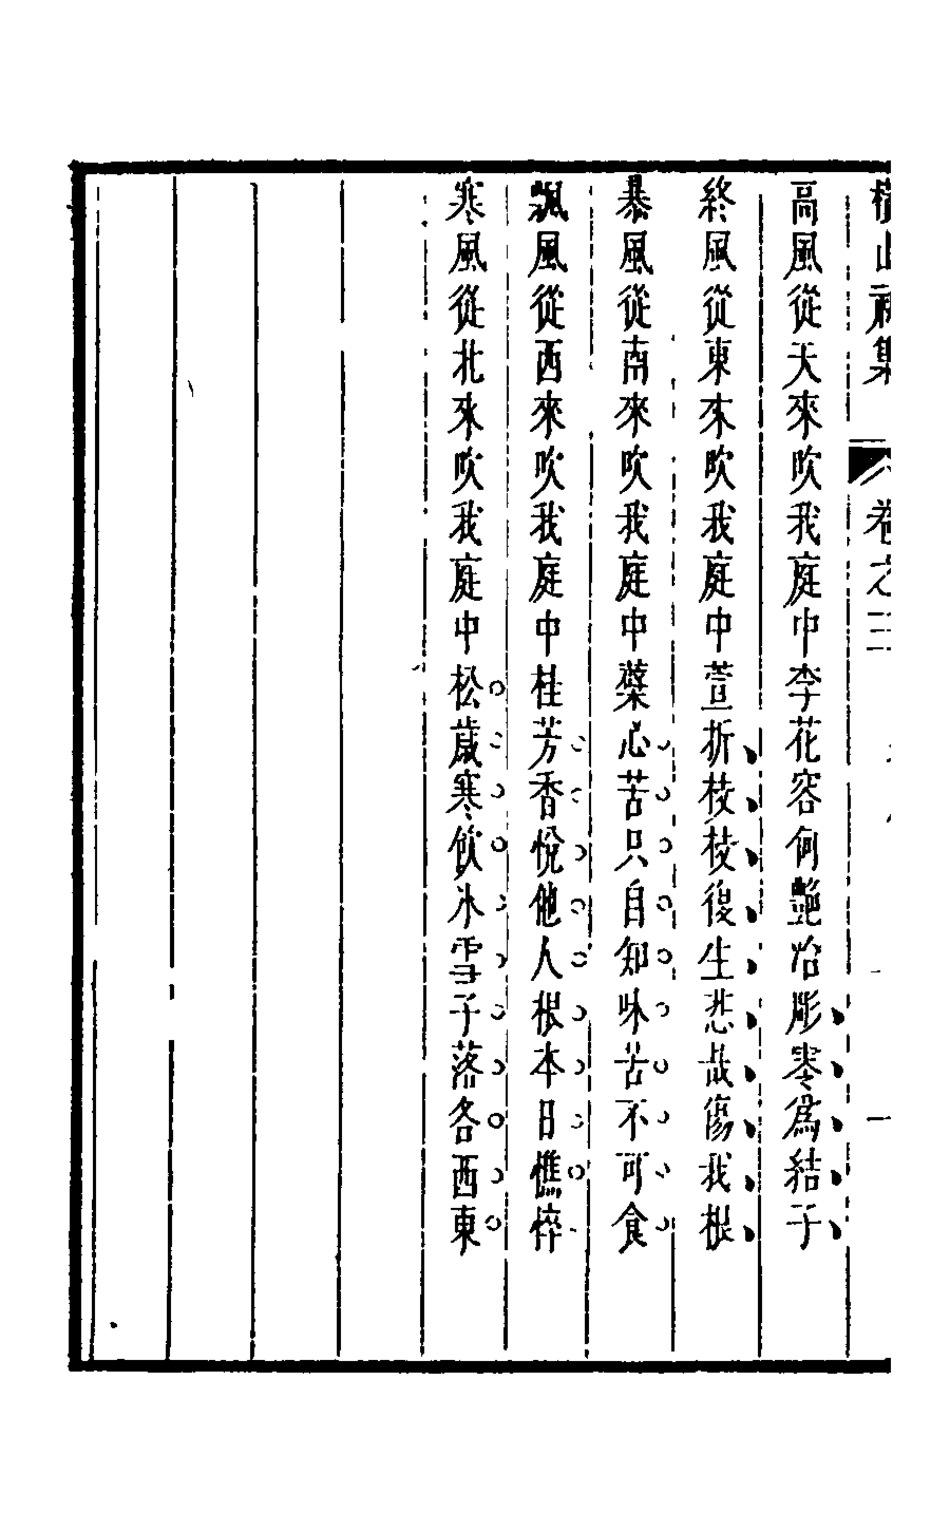 橫山初集 卷之三
高風從天來吹我庭中李花容何艶冶彫零爲結子
終風從東來吹我庭中萱折枝枝復生悲哉傷我根
暴風從南來吹我庭中蘗心苦只自知味苦不可食
飄風從西來吹我庭中桂芳香悅他人根本日憔悴
寒風從北來吹我庭中松歲寒飲冰雪子落各西東